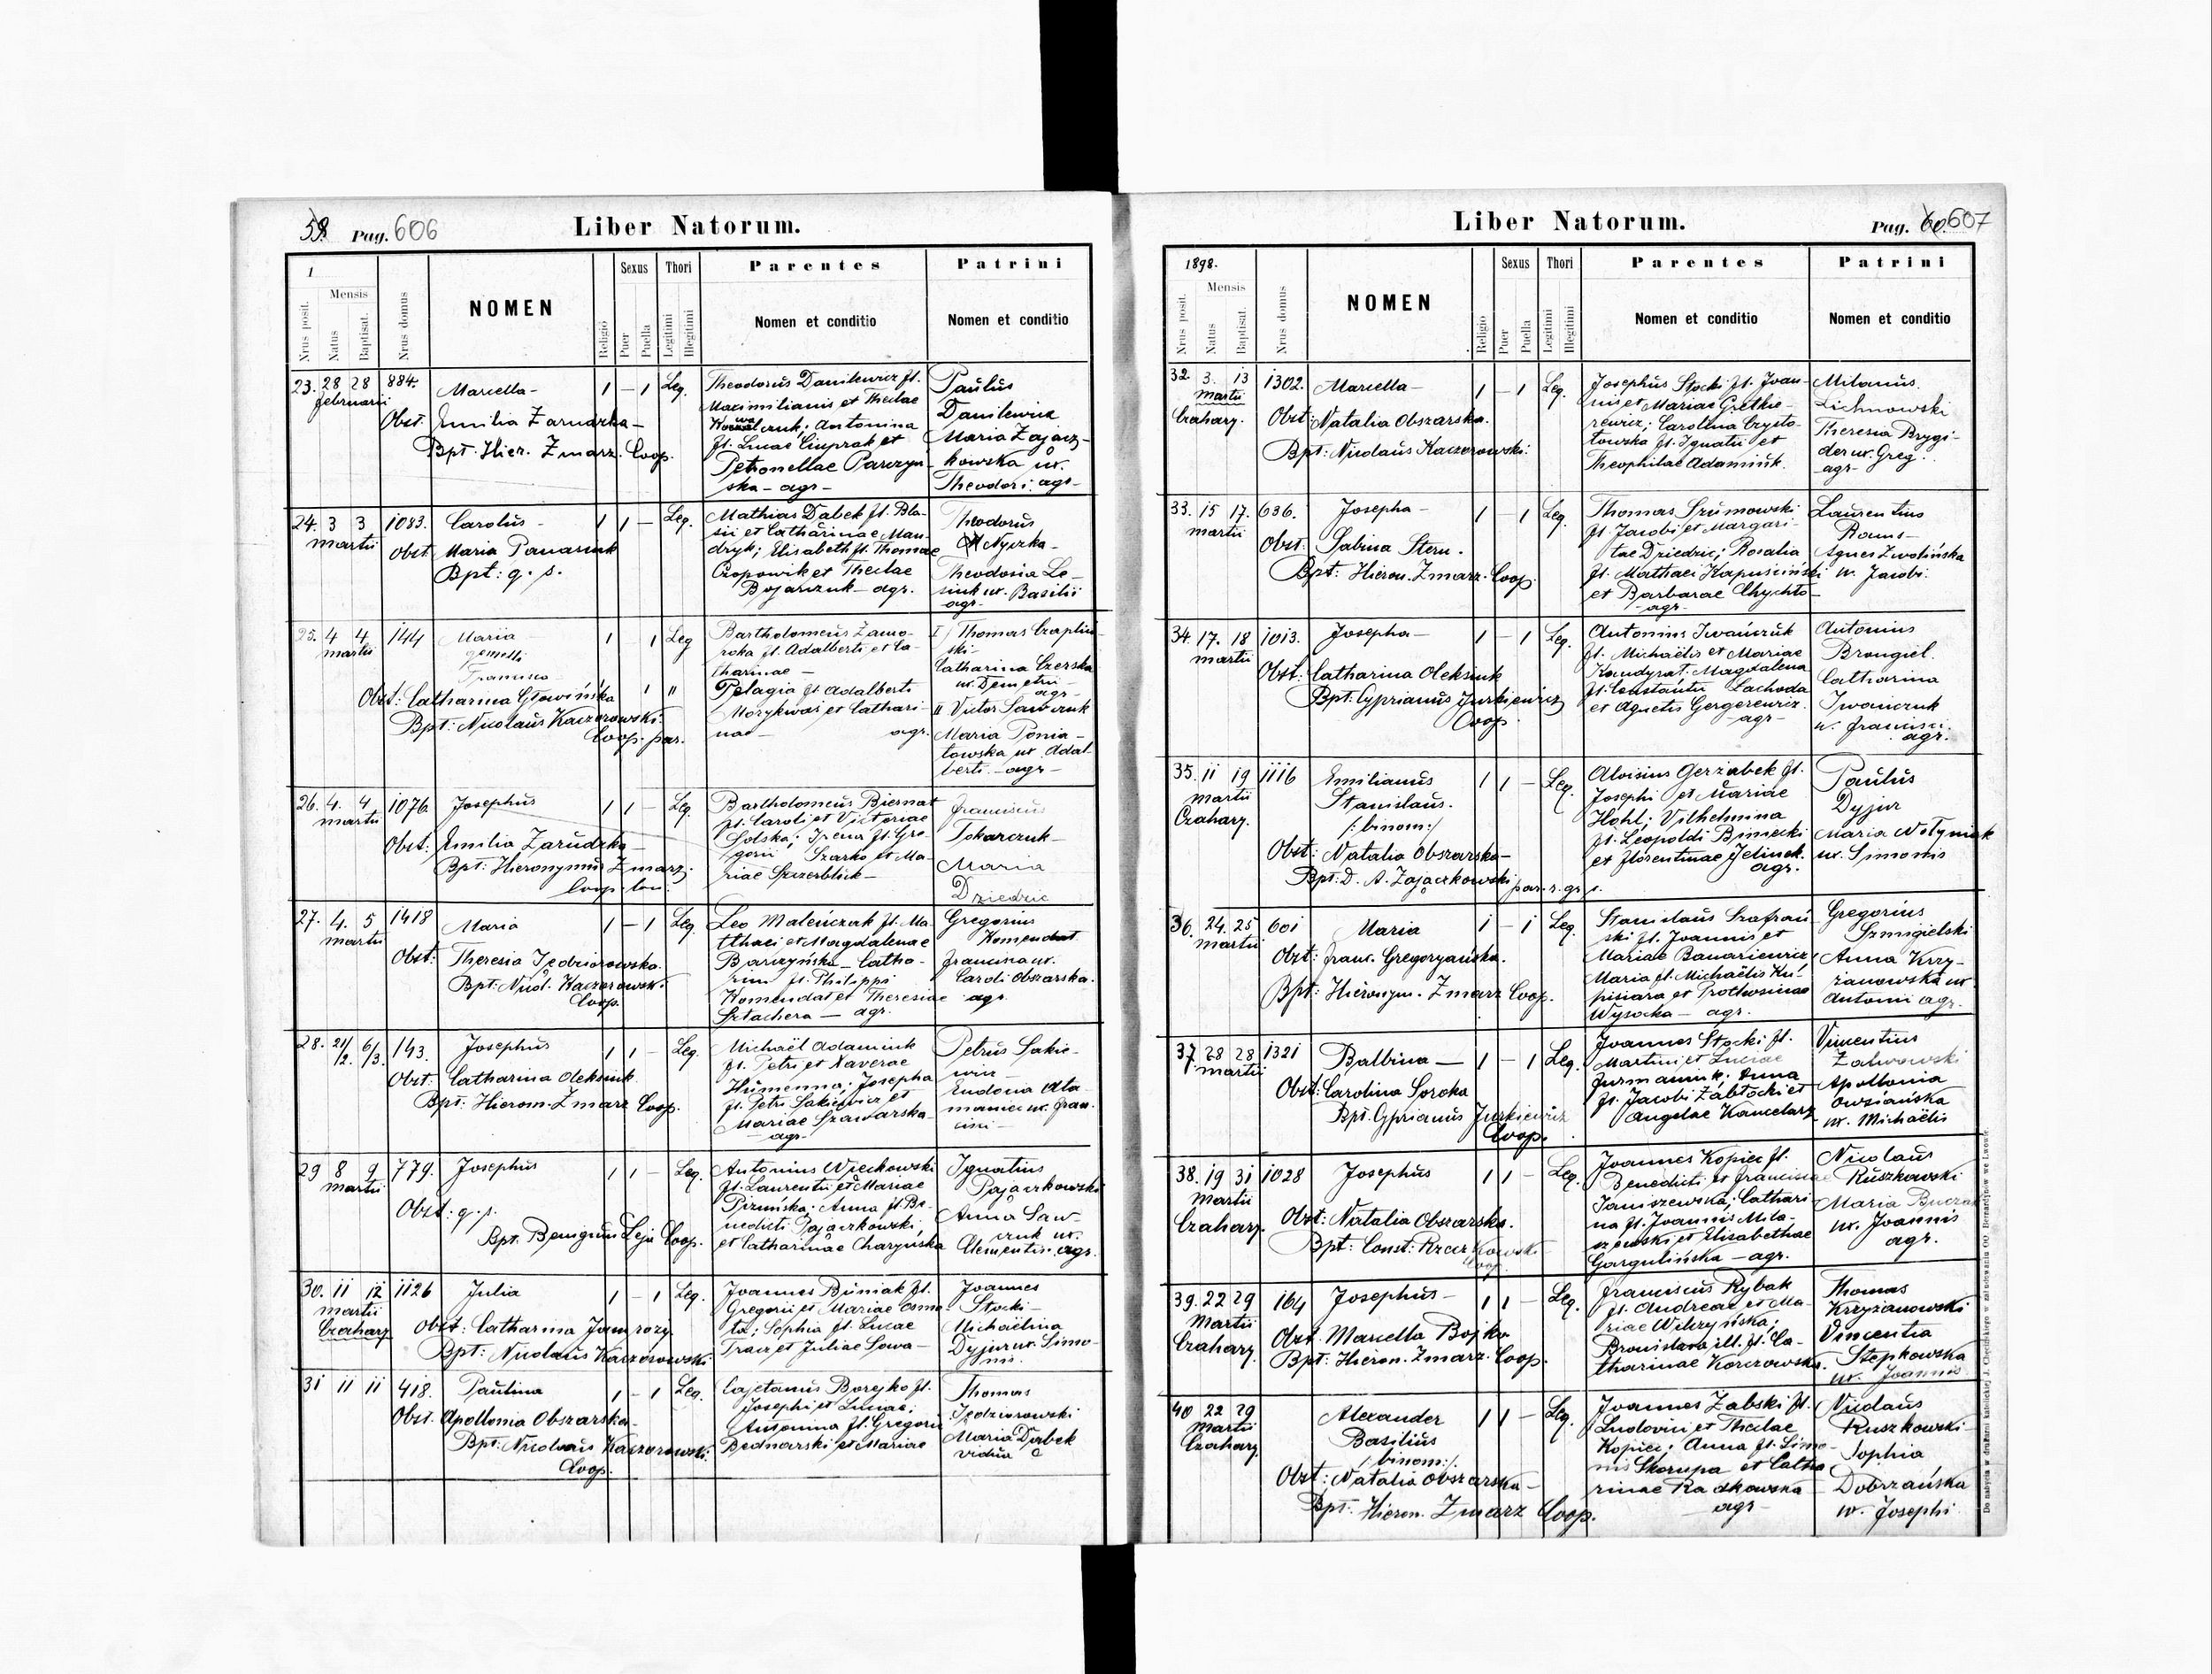 59. Pag. 606
Liber Natorum.
1
Mensis
Nrus posit.
Natus
Baptisat.
Nrus domus
NOMEN
Religio
Sexus
Puer
Puella
Thori
Legitimi
Illegitimi
Parentes
Nomen et conditio
Patrini
Nomen et conditio
23. 28 28 884. Marcella- 1 - 1 Leg.
februarii
Obst. Emilia Zarudzka-
Bpt. Hier. Zmarz. Coop.
Theodorus Danilewicz fl.
Maximilianis et Theclae
Antonina
fl. Lucae Ciuprak et
Petronellae Parczyn-
ska - agr -
Paulus
Danilewicz
Maria Zajacz-
kowska ux.
Theodori. agr-
24. 3 3 1083. Carolus - 1 1 - Leg.
martii
Obst Maria Panasiuk
Bpt: q. s.
Mathias Dabek fl. Bla-
sii et Catharinae Man-
dryk; Elisabeth fl. Thomae
Czopowik et Theclae
Bojarczuk - agr.
Theodorus
Nyczka-
Theodosia Le-
siuk ux. Basilii
agr-
25. 4 4 144 Maria 1 1 Leg
martii
gemelli
Francisca
Obst: Catharina Głowińska 1 "
Bpt: Nicolaus Kaczorowski.
Coop. par.
Bartholomeus Zawo-
roka fl. Adalberti et Ca-
tharinae -
Pelagia fl. Adalberti
Morykwas et Cathari-
nae - agr.
I/ Thomas Czapliń-
ski-
Catharina Czerska
ux. Demetrii -
agr-
II Victor Sawczuk
Maria Ponia-
towska ux. Adal
berti. - agr -
26. 4. 4 1076. Josephus 1 1 - Leg.
martii
Obst: Emilia Zarudzka-
Bpt: Hieronymus Zmarz.
Coop.
Bartholomeus Biernat
fl. Caroli et Victoriae
Solska; Irena fl. Gre-
gorii Szarko et Ma-
riae
Franciscus
Tokarczuk-
Maria
Dziedzic
27. 4. 5 1418 Maria 1 - 1 Leg.
martii
Obst: Theresia Jędziorowska.
Bpt: Nicol. Kaczorowski.
Coop.
Leo Maleńczak fl. Ma-
tthaei et Magdalenae
Barczyńska - Catha-
rina fl. Philippi
Komendat et Theresiae
Sztachera - agr.
Gregorius
Komendat
Francisca ux.
Caroli Obszarska.
agr.
28. 21/2. 6/3. 143. Josephus 1 1 - Leg.
Obst: Catharina Oleksiuk
Bpt: Hieron. Zmarz Coop.
Michaël Adamiuk
fl. Petri et Xaverae
Humenna; Josepha
fl. Petri Sakiewicz et
Mariae Szawarska-
- agr-
Petrus Sakie-
wicz -
Eudocia Ada-
maniec ux. Fran-
cisci -
29 8 9 779. Josephus 1 1 - Leg.
martii
Obst: q. s.
Bpt. Benignus Leja Coop.
Antonius Więckowski
fl. Laurentii et Mariae
Pizuńska; Anna fl. Be-
nedicti Pajaczkowski,
et Catharinae Charyńska
Ignatius
Pajaczkowski
Anna Saw-
czuk ux.
Clementis. agr.
30. 11 12 1126 Julia 1 - 1 Leg.
martii
Czahary
Obst: Catharina Jamrozy.
Bpt: Nicolaus Kaczorowski.
Joannes Buniak fl.
Gregorii et Mariae Osmo-
ta; Sophia fl. Lucae
Tracz et Juliae Sowa-
Joannes
Stocki-
Michaëlina
Dyjur ux. Simo-
nis.
31 11 11 418. Paulina 1 - 1 Leg.
Obst. Apollonia Obszarska-
Bpt: Nicolaus Kaczorowski.
Coop.
Cajetanus Borejko fl.
Josephi et Lucae;
Antonina fl. Gregorii
Bednarski et Mariae
Thomas
Jędziorowski
Maria Dąbek
vidua
Liber Natorum.
Pag. 60. 607
1898.
Mensis
Nrus posit.
Natus
Baptisat.
Nrus domus
NOMEN
Religio
Sexus
Puer
Puella
Thori
Legitimi
Illegitimi
Parentes
Nomen et conditio
Patrini
Nomen et conditio
32. 3. 13 1302. Marcella- 1 - 1 Leg.
martii
Czahary.
Obst: Natalia Obszarska.
Bpt: Nicolaus Kaczorowski.
Josephus Stocki fl. Joan-
nis et Mariae Gretkie-
rewicz; Carolina Czysto-
towska fl. Ignatii et
Theophilae Adamiuk.
Milanus
Lichnowski
Theresia Brygi-
der ux. Greg.
agr-
33. 15 17. 636. Josepha - 1 - 1 Leg.
martii
Obst: Sabina Stern.
Bpt: Hieron. Zmarz. Coop.
Thomas Szumowski
fl. Jacobi et Margari-
tae Dziedzic; Rosalia
fl. Mathaei Kapuściński
et Barbarae Chychło-
- agr-
Laurentius
Roms-
Agnes Zwolińska
ux. Jacobi.
34. 17. 18 1013. Josepha - 1 - 1 Leg.
martii
Obst: Catharina Oleksiuk
Bpt: Cyprianus Jurkiewicz
Coop.
Antonius Iwańczuk
fl. Michaëlis et Mariae
Kondyrat. Magdalena
fl. Constantii Lachoda
et Agnetis Gergerewicz.
- agr-
Antonius
Brongiel.
Catharina
Iwańczuk
ux. Francisci.
agr.
35. 11 19 1116 Emilianus 1 1 - Leg.
martii
Czahary.
Stanislaus.
/:binom:/
Obst: Natalia Obszarska-
Bpt: D. A. Zajączkowski par. r. gr.
Aloisius Gerżabek fl.
Josephi et Mariae
Hohl; Vilhelmina
fl. Leopoldi Biniecki
et Florentinae Jelinek.
agr.
Paulus
Dyjur
Maria Wołyniak
ux. Simonis
36. 24. 25 601 Maria 1 - 1 Leg.
martii
Obst: Franc. Gregoryańska.
Bpt: Hieronym. Zmarz Coop.
Stanislaus Szafrań-
ski fl. Joannis et
Mariae Banariewicz;
Maria fl. Michaëlis Ku-
pisiara et
Wysocka - agr.
Gregorius
Szmigielski
Anna Krzy-
żanowska ux.
Antoni agr.
37. 28 28 1321 Balbina - 1 - 1 Leg.
martii
Obst: Carolina Soroka
Bpt. Cyprianus Jurkiewicz
Coop.
Joannes Stocki fl.
Martini et Luciae
Furmaniuk; Anna
fl. Jacobi Zabłocki et
Angelae Kancelarz
Vincentius
Zalwowski
Apollonia
Owsiańska
ux. Michaëlis
38. 19 31 1028 Josephus 1 1 - Leg.
Martii
Czahary.
Obst: Natalia Obszarska.
Bpt: Const: Rzaczkowski
Coop.
Joannes Kopiec fl.
Benedicti et Franciscae
Januszewska; Cathari-
na fl. Joannis Mila-
szewski et Elisabethae
Gargulińska - agr.
Nicolaus
Ruszkowski
Maria
ux. Joannis
agr.
39. 22 29 164 Josephus - 1 1 - Leg.
Martii
Czahary.
Obst. Marcella Bojko
Bpt: Hieron. Zmarz. Coop.
Franciscus Rybak
fl. Andreae et Ma-
riae Wilczyńska;
Bronislava ill. fl. Ca-
tharinae Korczowska.
Thomas
Krzyżanowski
Vincentia
Stepkowska
ux. Joannis
40 22 29 Alexander 1 1 - Leg.
Martii
Czahary.
Basilius
/:binom:/.
Obst: Natalia Obszarska-
Bpt: Hieron. Zmarz Coop.
Joannes Zabski fl.
Ludovici et Theclae
Kopiec; Anna fl. Simo-
nis Skorupa et Catha
rinae Radkowska
agr-
Nicolaus
Ruszkowski-
Sophia
Dobrzańska
ux. Josephi
Do nabycia w drukarni katolickiej J. Chęcińskiego w zabudowaniu OO. Bernardynów we Lwowie.